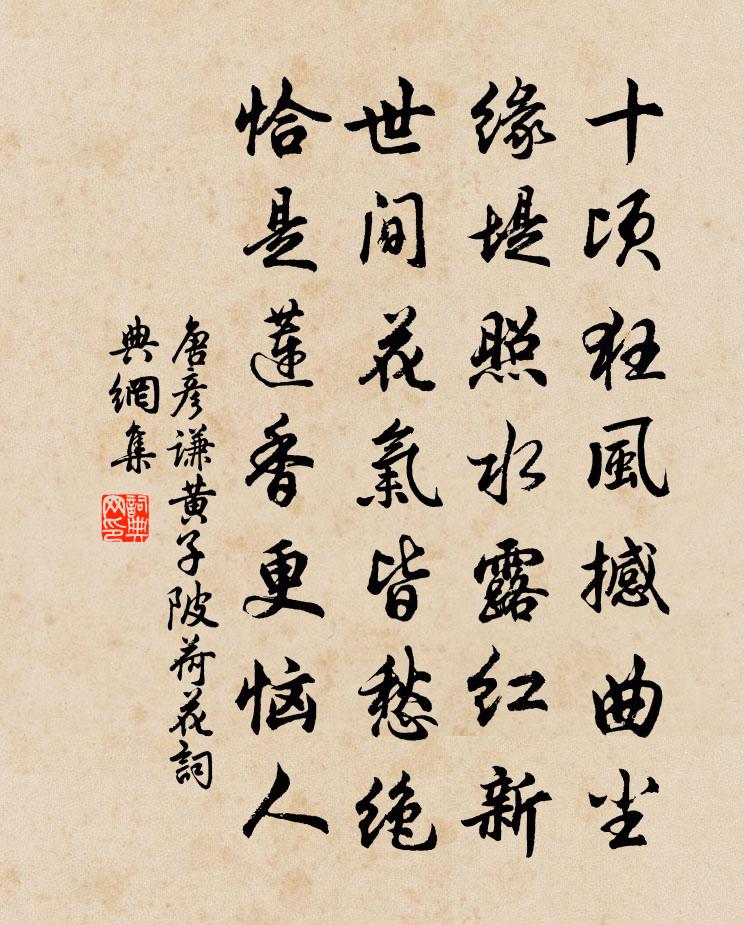 十顷狂風撼曲尘
缘堤照水露红新
世间花氣皆愁绝
恰是莲香更恼人
唐彦谦黄子陂荷花詞
典網集
詞典
网印